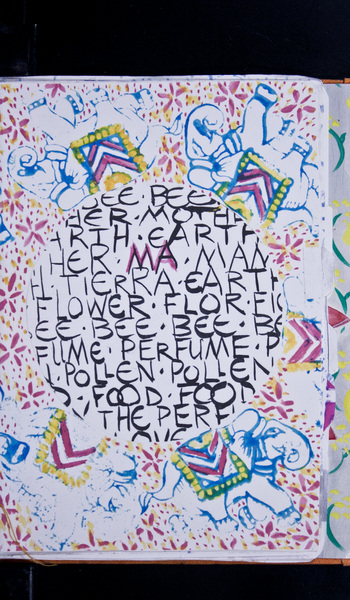 BEE BEE
HER·MOTH
ARTH·EARTH
HER MA MAN
TIERRA·EARTH
FLOWER·FLOR·FIO
EE·BEE·BEE·BE
FUME·PERFUME·P
POLLEN·POLLEN
FOOD·FOOD
THE PERF